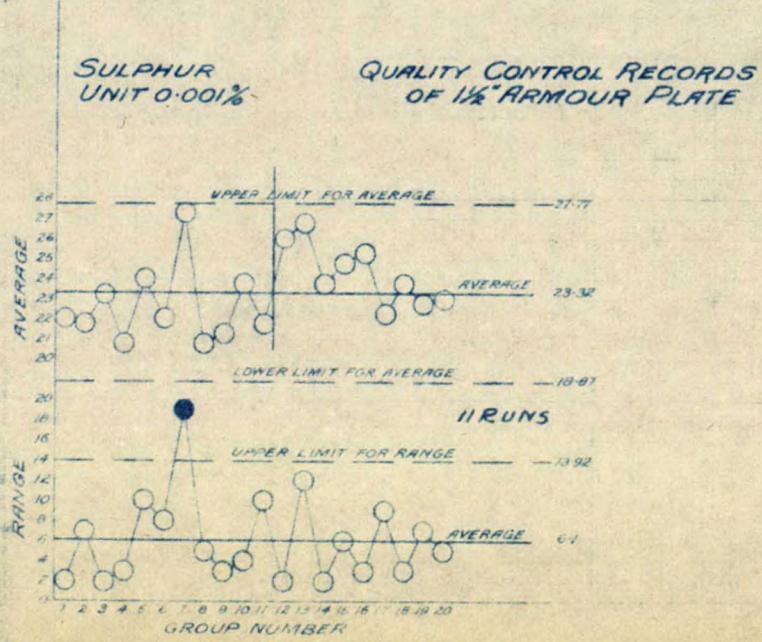 SULPHUR
UNIT 0·001%
QUALITY CONTROL RECORDS
OF 1½" ARMOUR PLATE
UPPER LIMIT FOR AVERAGE
27·77
AVERAGE
28
27
26
25
24
23
22
21
20
AVERAGE
23·32
LOWER LIMIT FOR AVERAGE
18·87
11 RUNS
RANGE
20
18
16
14
12
10
8
6
4
2
0
UPPER LIMIT FOR RANGE
13·92
AVERAGE
6·1
1 2 3 4 5 6 7 8 9 10 11 12 13 14 15 16 17 18 19 20
GROUP NUMBER